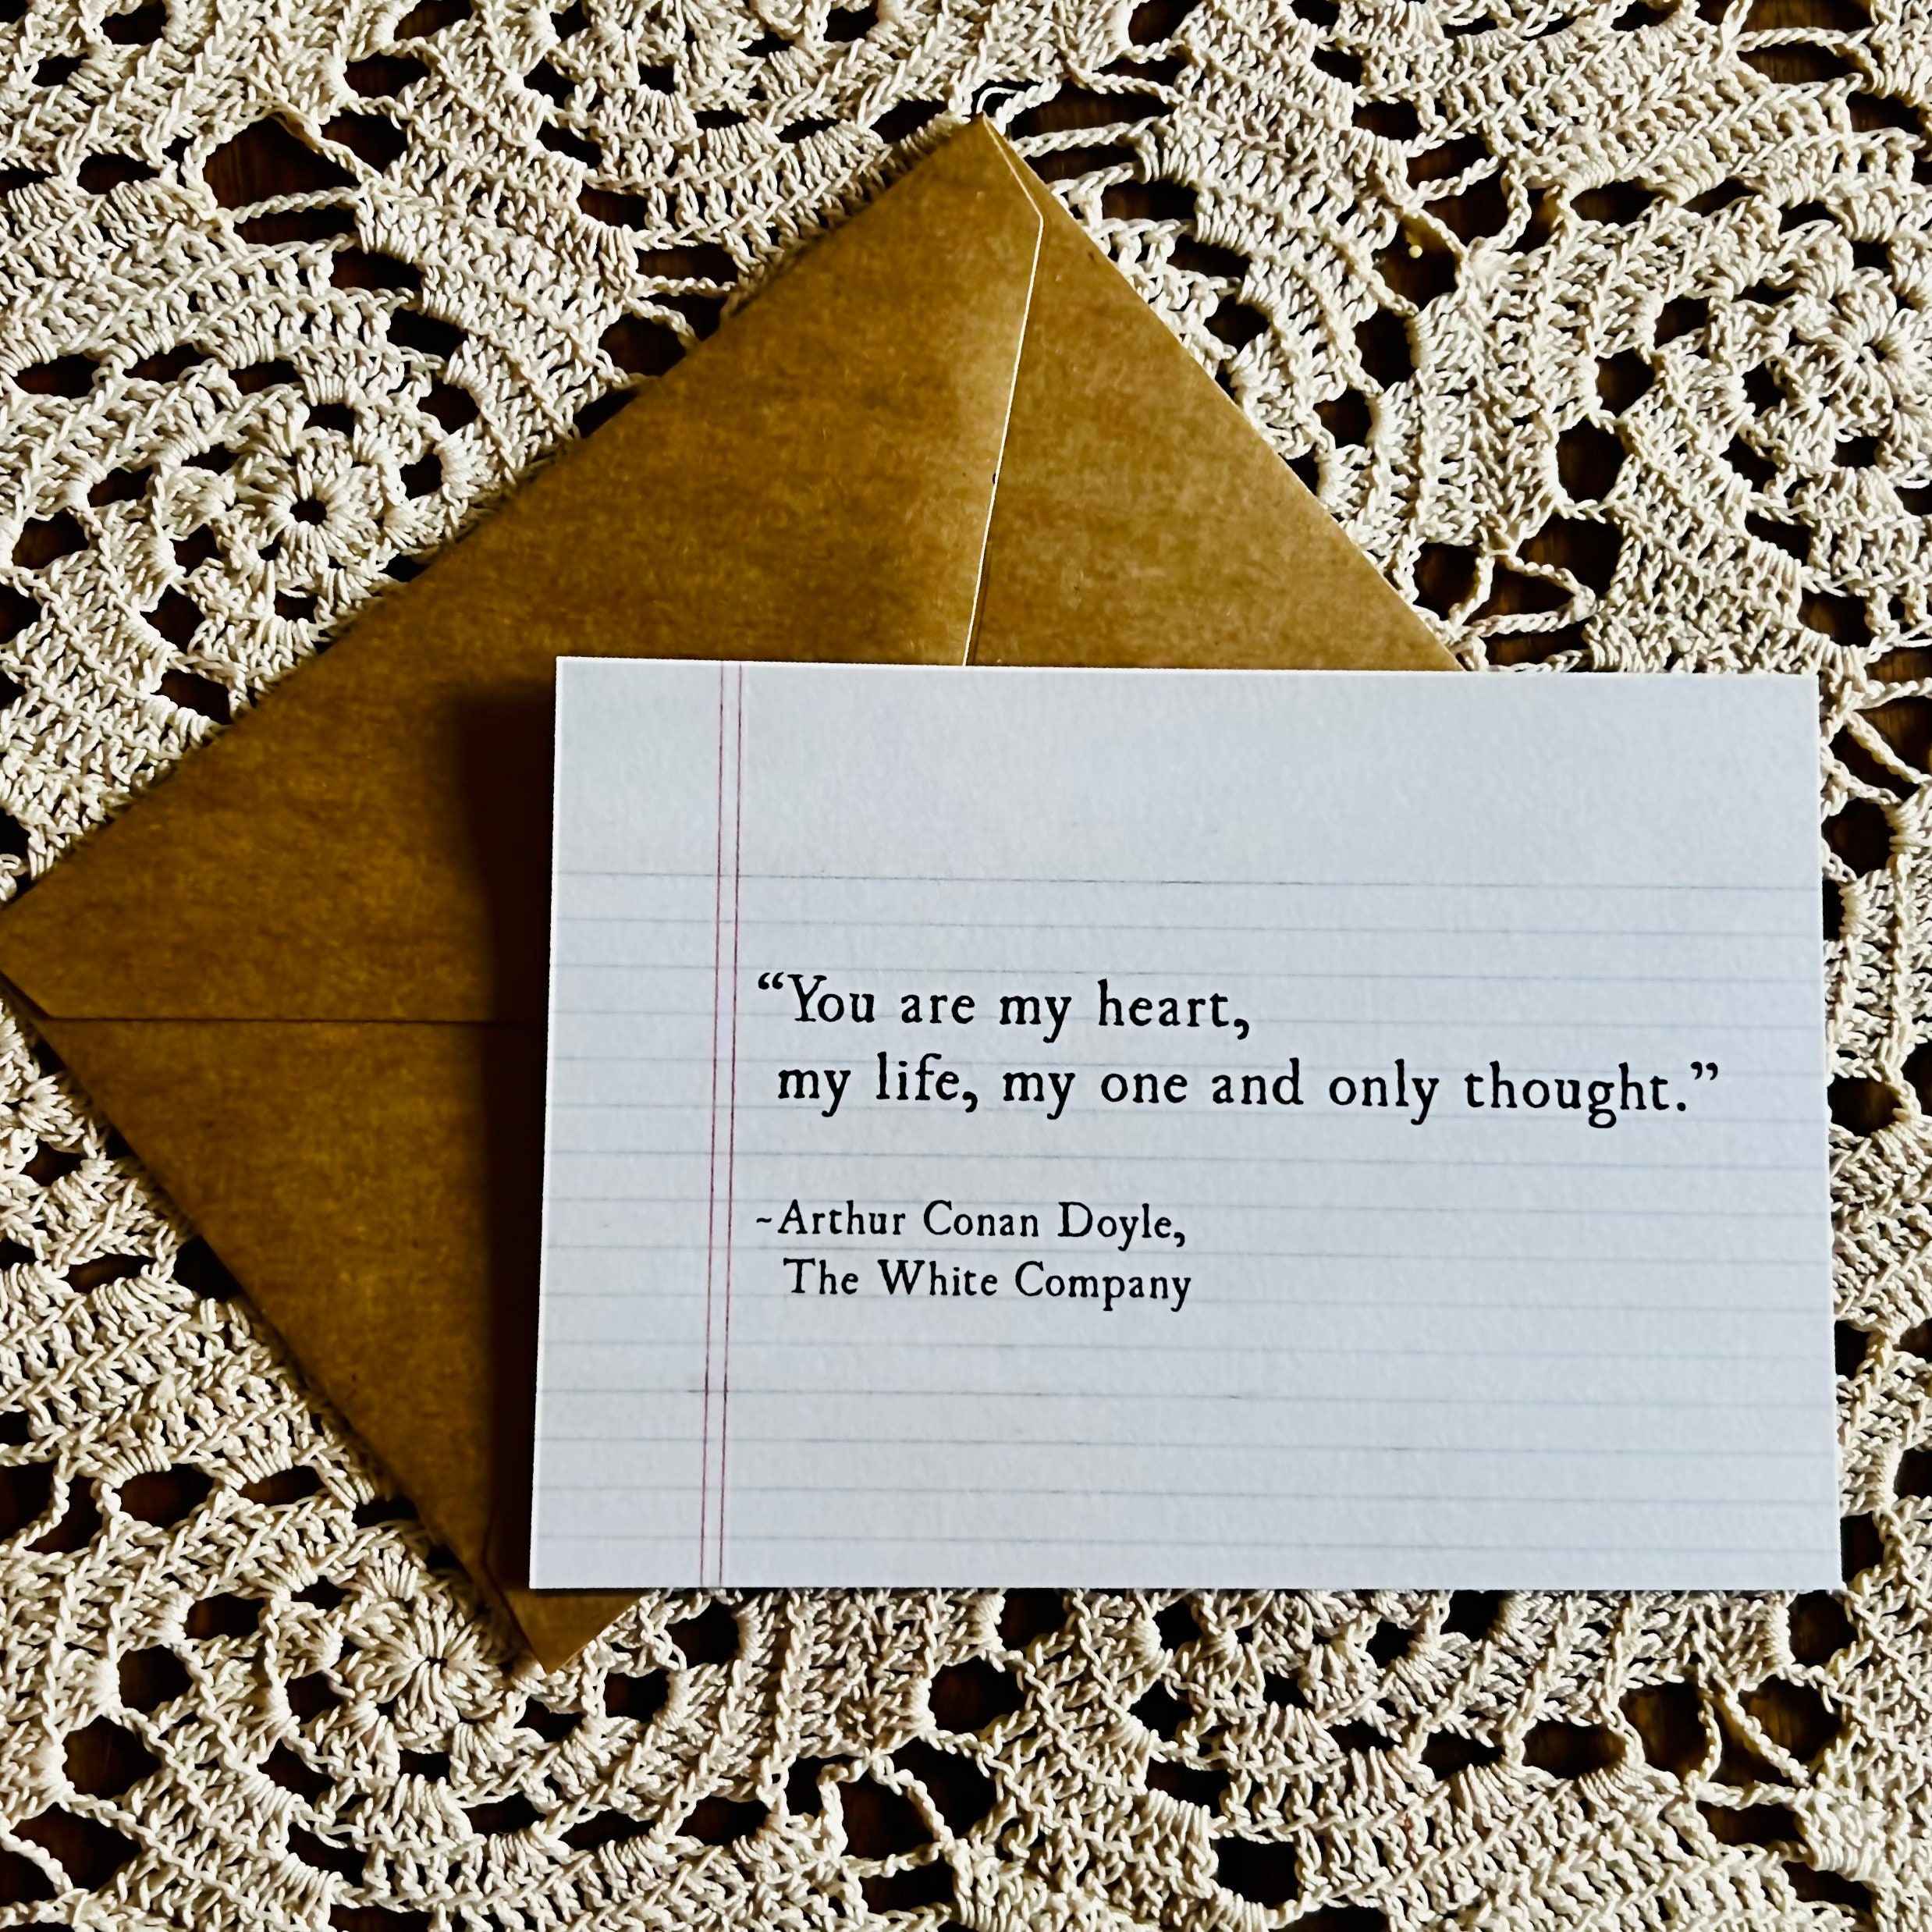 “You are my heart,
my life, my one and only thought.”
~Arthur Conan Doyle,
The White Company